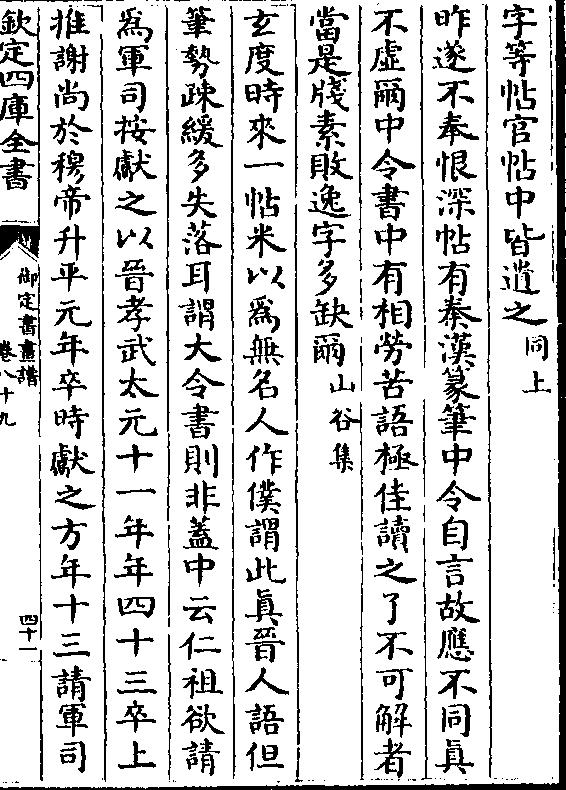 字等帖官帖中皆遺之同上
昨遂不奉恨深帖有秦漢篆筆中令自言故應不同真
不虛爾中令書中有相勞苦語極佳讀之了不可解者
當是牋素敗逸字多缺爾山谷集
玄度時來一帖米以為無名人作僕謂此真晉人語但
筆勢疎緩多失落耳謂大令書則非蓋中云仁祖欲請
為軍司按獻之以晉孝武太元十一年年四十三卒上
推謝尚於穆帝升平元年卒時獻之方年十三請軍司
欽定四庫全書
御定書畫譜
卷八十九
四十一